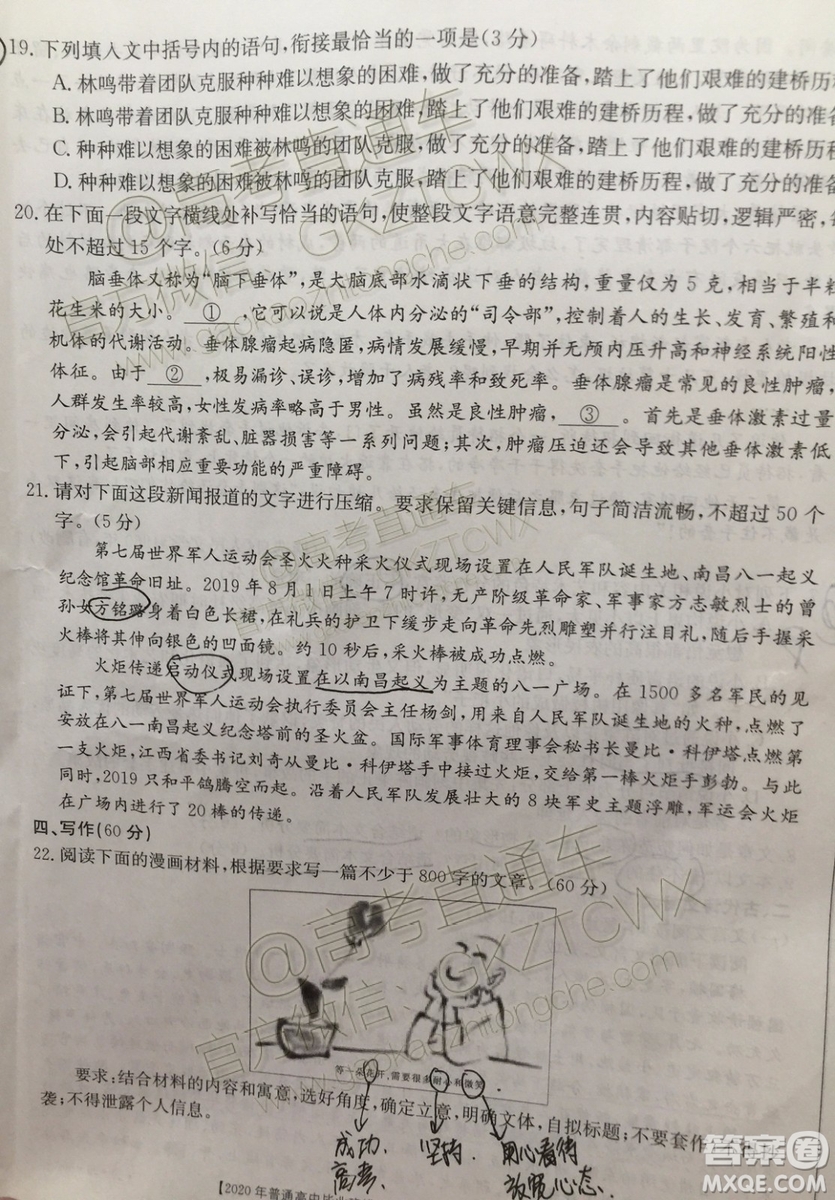 19.下列填入文中括号内的语句,衔接最恰当的一项是(3分)
A.林鸣带着团队克服种种难以想象的困难,做了充分的准备,踏上了他们艰难的建桥历程
B.林鸣带着团队克服种种难以想象的困难,踏上了他们艰难的建桥历程,做了充分的准备,
C.种种难以想象的困难被林鸣的团队克服,做了充分的准备,踏上了他们艰难的建桥历
D.种种难以想象的困难被林鸣的团队克服,踏上了他们艰难的建桥历程,做了充分的准备
20.在下面一段文字横线处补写恰当的语句,使整段文字语意完整连贯,内容贴切,逻辑严密,
处不超过15个字。(6分)
脑垂体又称为“脑下垂体”,是大脑底部水滴状下垂的结构,重量仅为5克,相当于半粒
花生米的大小。 ① ,它可以说是人体内分泌的“司令部”,控制着人的生长、发育、繁殖和
机体的代谢活动。垂体腺瘤起病隐匿,病情发展缓慢,早期并无颅内压升高和神经系统阳性
体征。由于 ② ,极易漏诊、误诊,增加了病残率和致死率。垂体腺瘤是常见的良性肿瘤,
人群发生率较高,女性发病率略高于男性。虽然是良性肿瘤, ③ 。首先是垂体激素过量
分泌,会引起代谢紊乱、脏器损害等一系列问题;其次,肿瘤压迫还会导致其他垂体激素低
下,引起脑部相应重要功能的严重障碍。
21.请对下面这段新闻报道的文字进行压缩。要求保留关键信息,句子简洁流畅,不超过50个
字。(5分)
第七届世界军人运动会圣火火种采火仪式现场设置在人民军队诞生地、南昌八一起义
纪念馆革命旧址。2019年8月1日上午7时许,无产阶级革命家、军事家方志敏烈士的曾
孙女方铭璐身着白色长裙,在礼兵的护卫下缓步走向革命先烈雕塑并行注目礼,随后手握采
火棒将其伸向银色的凹面镜。约10秒后,采火棒被成功点燃。
火炬传递启动仪式现场设置在以南昌起义为主题的八一广场。在1500多名军民的见
证下,第七届世界军人运动会执行委员会主任杨剑,用来自人民军队诞生地的火种,点燃了
安放在八一南昌起义纪念塔前的圣火盆。国际军事体育理事会秘书长曼比·科伊塔点燃第
一支火炬,江西省委书记刘奇从曼比·科伊塔手中接过火炬,交给第一棒火炬手彭勃。与此
同时,2019只和平鸽腾空而起。沿着人民军队发展壮大的8块军史主题浮雕,军运会火炬
在广场内进行了20棒的传递。
四、写作(60分)
22.阅读下面的漫画材料,根据要求写一篇不少于800字的文章。(60分)
等一朵花开,需要很多耐心和微笑
要求:结合材料的内容和寓意,选好角度,确定立意,明确文体,自拟标题;不要套作,
袭;不得泄露个人信息。
成功、 坚持、 用心看待
高考、 放宽心态.
【2020年普通高中毕业
@高考直通车
官方微信:GKZTCWX
www.gaokaozhitongche.com
@高考直通车
官方微信:GKZTCWX
www.gaokaozhitongche.com
答案圈
MXQE.COM